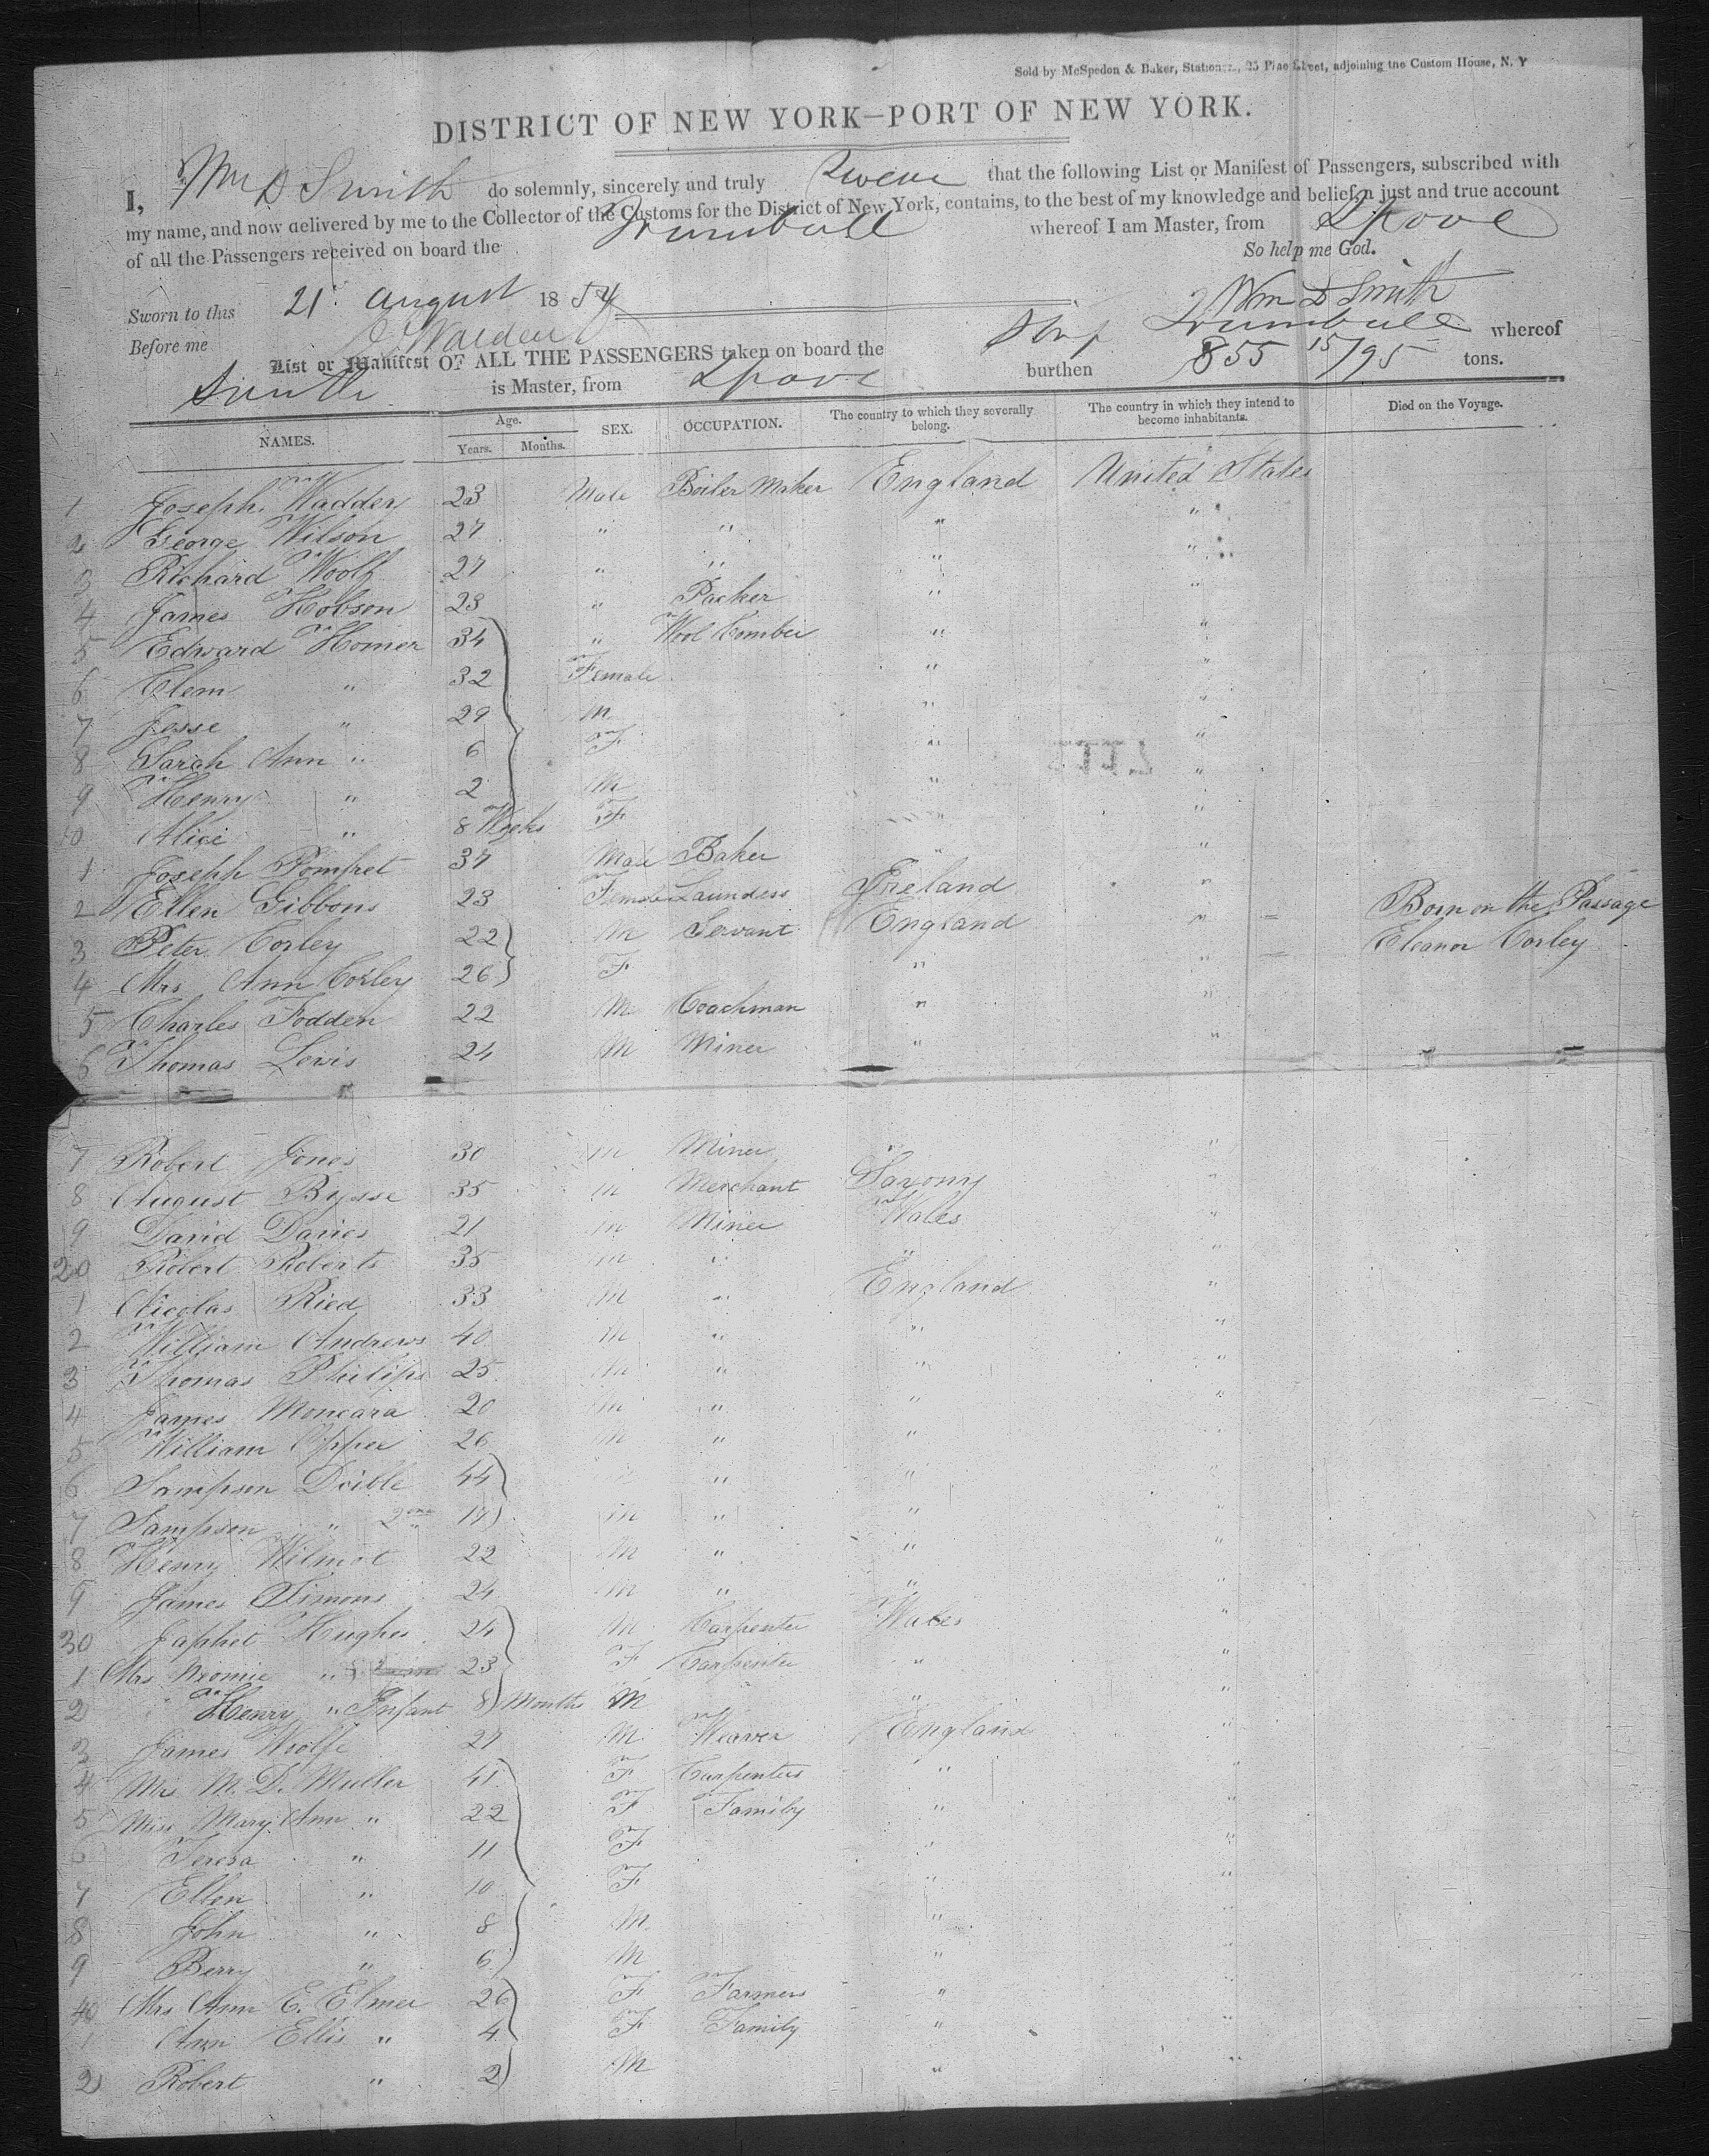 Sold by McSpedon & Baker, Stationers, 25 Pine Street, adjoining the Custom House, N. Y
DISTRICT OF NEW YORK—PORT OF NEW YORK.
I, Wm D Smith do solemnly, sincerely and truly Swear that the following List or Manifest of Passengers, subscribed with
my name, and now delivered by me to the Collector of the Customs for the District of New York, contains, to the best of my knowledge and belief, a just and true account
of all the Passengers received on board the Trumbull whereof I am Master, from Lpool
So help me God.
Sworn to this 21 August 1854 Wm D Smith
Before me
List or Manifest OF ALL THE PASSENGERS taken on board the Ship Trumbull whereof
Smith is Master, from Lpool burthen 855 15/95 tons.
NAMES. Age. Years. Months. SEX. OCCUPATION. The country to which they severally belong. The country in which they intend to become inhabitants. Died on the Voyage.
1 Joseph Wadder 23 Male Boiler Maker England United States
2 George Wilson 27 " " " "
3 Richard Woolf 27 " " " "
4 James Hobson 23 " Packer " "
5 Edward Homer 34 " Wool Comber " "
6 Clem " 32 Female " "
7 Jesse " 29 M " "
8 Sarah Ann " 6 F " "
9 Henry " 2 M " "
0 Alice " 8 Weeks F " "
1 Joseph Pomfret 37 Male Baker " "
2 Ellen Gibbons 23 Female Laundess Ireland " = Born on the Passage
3 Peter Corley 22 M Servant England " = Eleanor Corley
4 Mrs Ann Corley 26 F " "
5 Charles Fodden 22 M Coachman " "
6 Thomas Lewis 24 M Miner " "
7 Robert Jones 30 M Miner " "
8 August Bysse 35 M Merchant Saxony "
9 David Davies 21 M Miner Wales "
20 Robert Roberts 35 M " " "
1 Nicolas Ried 33 M " England "
2 William Andrews 40 M " " "
3 Thomas Philips 25 M " " "
4 James Moncara 20 M " " "
5 William Opper 26 M " " "
6 Sampson Doible 44 " " "
7 Sampson " 2 M " " "
8 Henry Wilmot 22 M " " "
9 James Simons 24 M " " "
30 Japhet Hughes 24 M Carpenter Wales "
1 Mrs Neomie " 23 F Carpenter " "
2 " Henry " Infant 8 Months M " "
3 James Woolfe 27 M Weaver England "
4 Mrs M. D. Muller 41 F Carpenters " "
5 Miss Mary Ann " 22 F Family " "
6 Teresa " 11 F " "
7 Ellen " 10 F " "
8 John " 8 M " "
9 Berry " 6 M " "
40 Mrs Ann E. Elmer 26 F Farmers " "
1 Ann Ellis " 4 F Family " "
2 Robert " 2 M " "